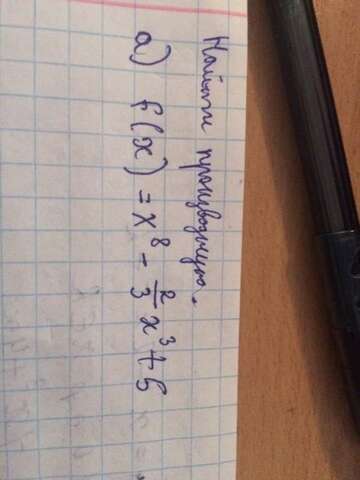 Найти производную.
а) f(x) = x⁸ - 2/3 x³ + 5